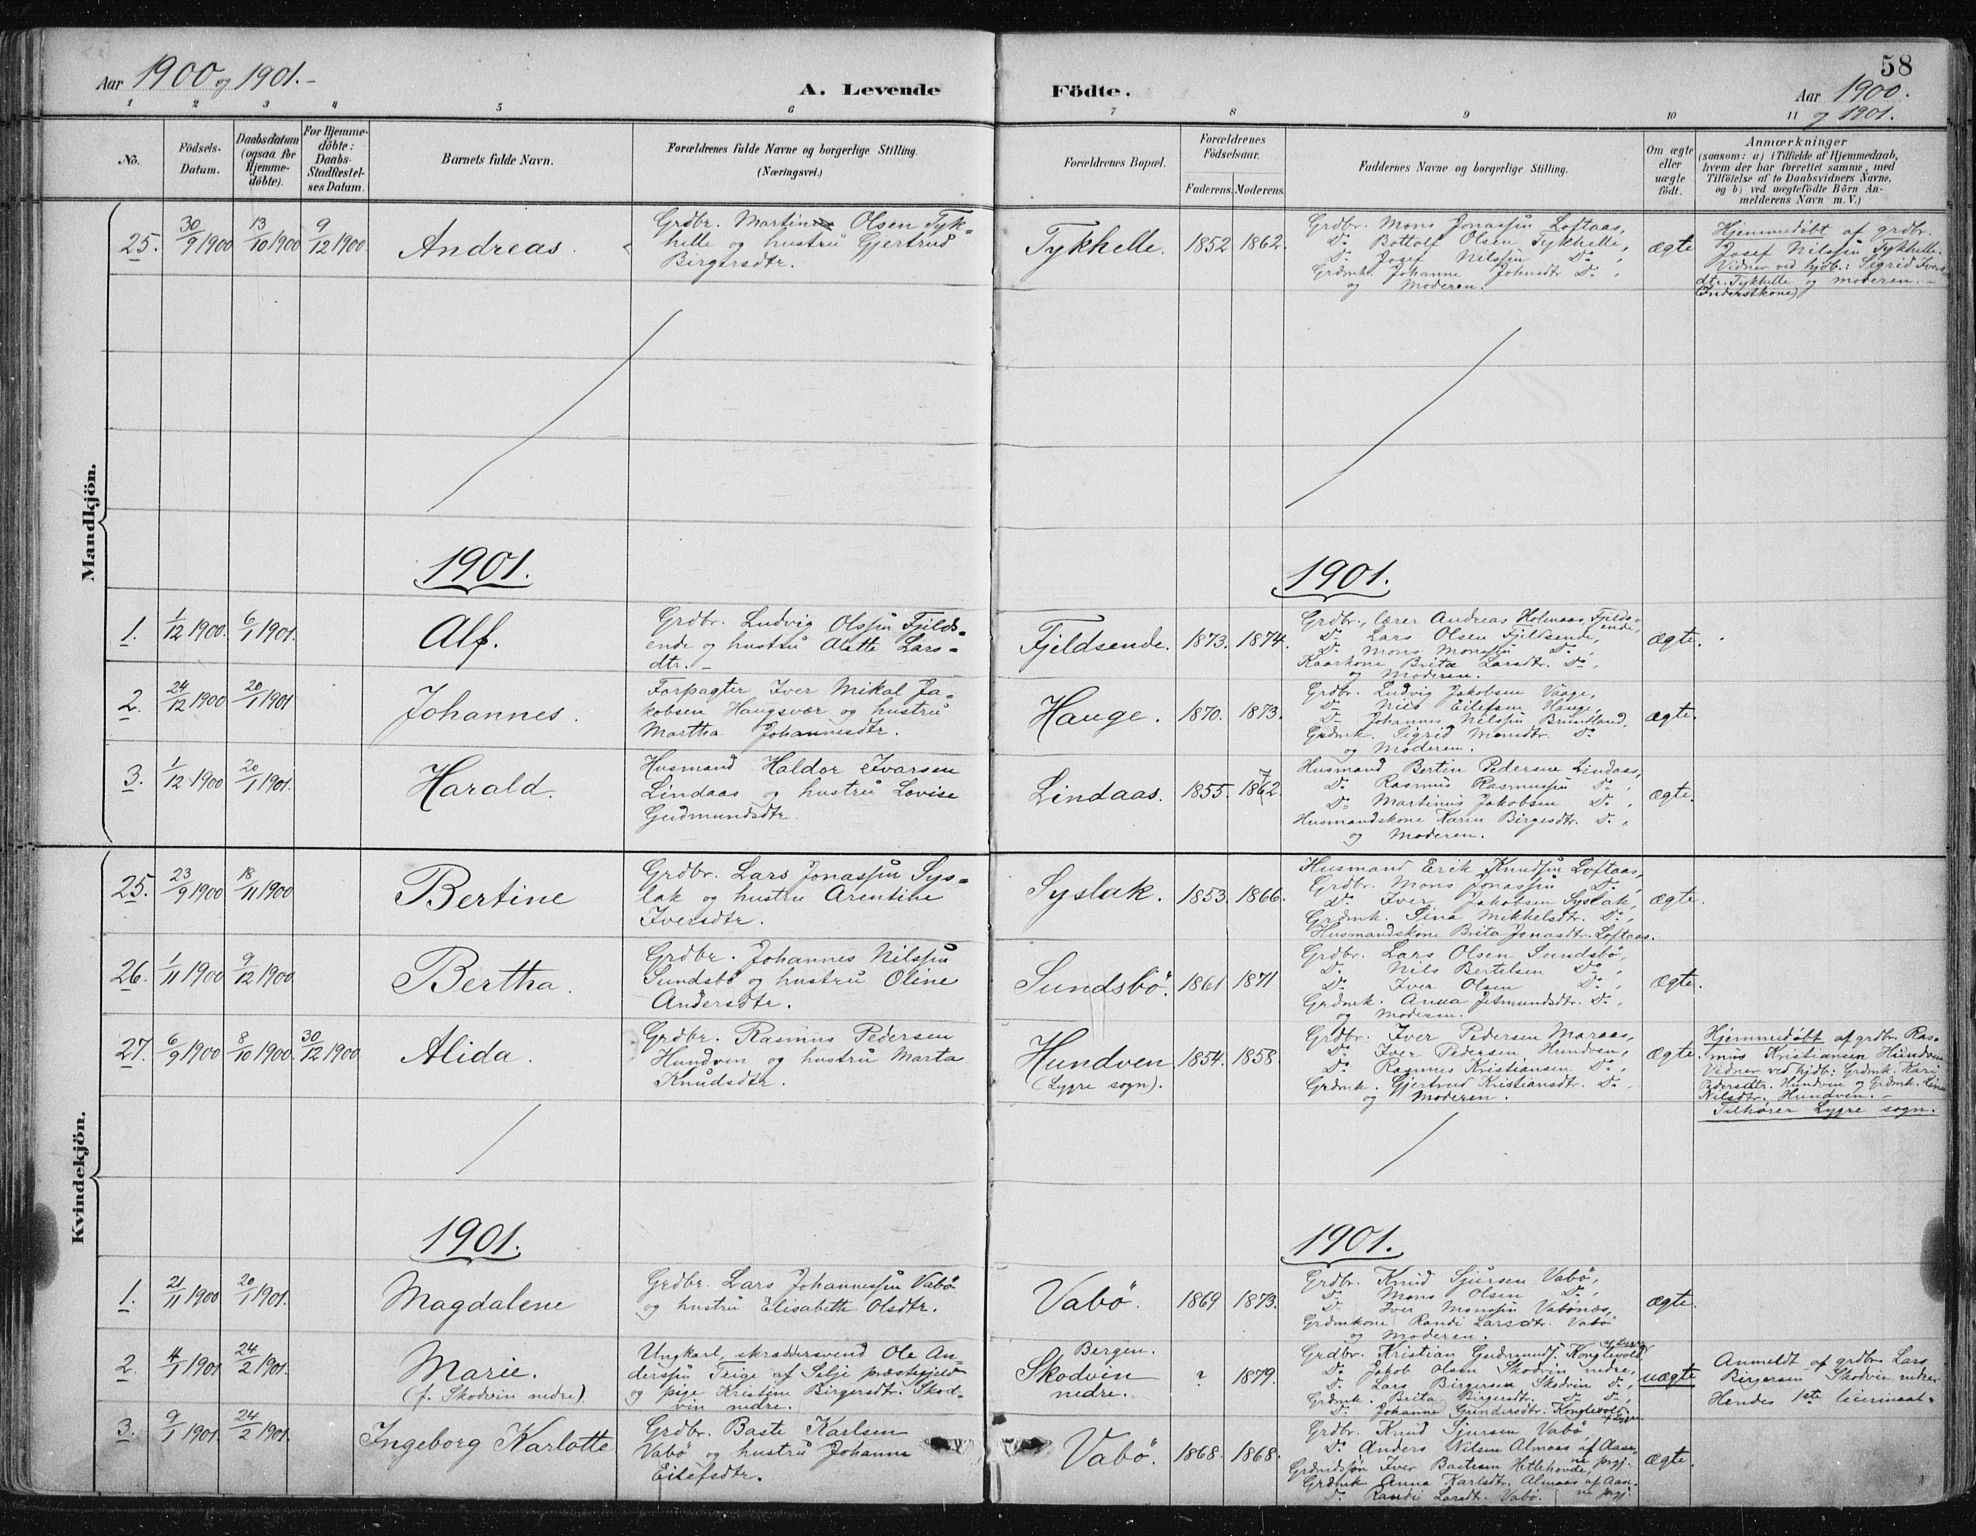 58
Aar 1900 og 1901.-
A. Levende Födte.
Aar 1900.
og 1901.
1 2 3 4 5 6 7 8 9 10 11
No.
Födsels-
Datum.
Daabsdatum
(ogsaa for
Hjemme-
døbte).
For Hjemme-
döbte:
Daabs-
Stadfæstel-
ses Datum.
Barnets fulde Navn.
Forældrenes fulde Navne og borgerlige Stilling.
(Næringsvei.)
Forældrenes Bopæl.
Forældrenes
Födselsaar.
Faderens. Moderens.
Faddernes Navne og borgerlige Stilling.
Om ægte
eller
uægte
födt.
Anmærkninger
(saasom: a) i Tilfælde af Hjemmedaab,
hvem der har forrettet samme, med
Tilföielse af to Daabsvidners Navne,
og b) ved uægtefödte Börn An-
melderens Navn m. V.)
Mandkjön.
25. 30/9 1900 13/10 1900 9/12 1900 Andreas.
Grdbr. Martin Olsen Tyk-
helle og hustru Gjertrud
Birgersdtr.
Tykhelle. 1852 1862.
Grdbr. Mons Jonassøn Loftaas,
Do. Bottolf Olsen Tykhelle,
Do. Josef Nilssøn Do.,
Grdmk. Johanne Johnsdtr Do.,
og Moderen.
Ægte
Hjemmedøbt af grdbr.
Josef Nilssøn Tykhelle.
Vidner ved hjdb.: Sigrid Ivers
dtr. Tykhelle og moderen.-
(Inderstkone)
1901.
1901.
1. 1/12 1900. 6/1 1901. Alf.
Grdbr. Ludvig Olssøn Fjelds-
ende og hustru Alette Lars-
dtr.-
Fjeldsende. 1873. 1874.
Grdbr., lærer Andreas Holmaas, Fjelds-
ende,
Do. Lars Olsen Fjeldsende,
Do. Mons Monssøn Do.,
Kaarkone Brita Larsdtr. Do.,
og Moderen.
Ægte.
2. 24/12 1900 20/1 1901 Johannes.
Forpagter Iver Mikal Ja-
kobsen Haugsvær og hustru
Martha Johannesdtr.
Hauge. 1870. 1873.
Grdbr. Ludvig Jakobsen Vaage,
Do. Nils Eilefsen Hauge,
Do. Johannes Nilssøn Brundtland,
Grdmk. Sigrid Monsdtr. Do.
og Moderen.
Ægte.
3. 1/12 1900 20/1 1901. Harald.
Husmand Haldor Ivarsen
Lindaas og hustru Lovise
Gudmundsdtr.
Lindaas. 1855. 1862.
Husmand Bertin Pedersen Lindaas,
Do. Rasmus Rasmussøn Do.,
Do. Martinus Jakobsen Do.,
Husmandskone Karen Birgesdtr. Do.,
og Moderen.
Ægte.
Kvindekjön.
25. 23/9 1900 18/11 1900. Bertine
Grdbr. Lars Jonassøn Sys-
lak og hustru Arentine
Iversdtr.
Syslak. 1853. 1866.
Husmand Erik Knudsøn Loftaas,
Grdbr. Mons Jonassøn Do.,
Do. Iver Jakobsen Syslak,
Grdmk. Sina Mikkelsdtr. Do.,
Husmandskone Brita Jonasdtr. Loftaas.
Ægte.
26. 1/11 1900 9/12 1900. Bertha.
Grdbr. Johannes Nilssøn
Sundsbö og hustru Oline
Andersdtr.
Sundsbö. 1861 1871
Grdbr. Lars Olsen Sundsbö,
Do. Nils Bertelsen Do.,
Do. Iver Olsen Do.,
Grdmk. Anna Jetmundsdtr. Do.,
og Moderen.
Ægte.
27. 6/9 1900 8/10 1900. 30/12 1900 Alida.
Grdbr. Rasmus Pedersen
Hundven og hustru Marta
Knudsdtr.
Hundven
(Lygre sogn).
1854. 1858
Grdbr. Iver Pedersen Maraas,
Do. Iver Pedersen Hundven,
Do. Rasmus Kristiansen Do.,
Grdmk. Gjertrud Kristiansdtr. Do.,
og Moderen.
Ægte.
Hjemmedøbt af grdbr. Ras-
mus Kristiansen Hundven
Vidner ved hjdb: Grdmk. Kari
Pedersdtr. Hundven og Grdmk. Lina
Nilsdtr. Hundven.-
Tilhører Lygre sogn.
1901.
1901.
1. 21/11 1900 20/1 1901. Magdalene
Grdbr. Lars Johannessøn Vabö
og hustru Elisabeth Olsdtr.
Vabö. 1869 1873.
Grdbr. Knud Sjursen Vabö,
Do. Mons Olsen Do.,
Do. Iver Monssøn Vabönæs,
Grdmkone Randi Larsdtr. Vabö
og Moderen.
Ægte.
2. 4/1 1901 24/2 1901. Marie.
(f. Skodvin nedre)
Ungkarl, skræddersvend Ole An-
derssøn Teige af Selje præstegjeld
og pige Kristine Birgersdtr. Skod-
vin nedre.
Bergen.
Skodvin
nedre.
? 1879.
Grdbr. Kristian Gudmunds. Konglevold
af Lygre
Do. Jakob Olsen Skodvin nedre,
Do. Lars Birgersen Skodvin Do.,
Grdmk. Brita Birgersdtr. Do. Do.,
Do. Johanne Gundersdtr. Konglevold
af Lygre
uægte
Anmeldt af grdbr. Lars
Birgersen Skodvin nedre
Hendes 1ste leiermaal.-
3. 9/1 1901. 24/2 1901. Ingeborg Karlotte
Grdbr. Baste Karlsen
Vabö og hustru Johanne
Eilefsdtr.
Vabö. 1868. 1868.
Grdbr. Knud Sjursen Vabö,
Do. Anders Nilsen Almaas af Aase-
ne prgj.
Grdmdssøn Iver Bastesen Hillehovde,
Grdmk. Anna Karlsdtr. Almaas af Aase-
ne prgj.
Do. Randi Larsdt. Vabö.
Ægte.